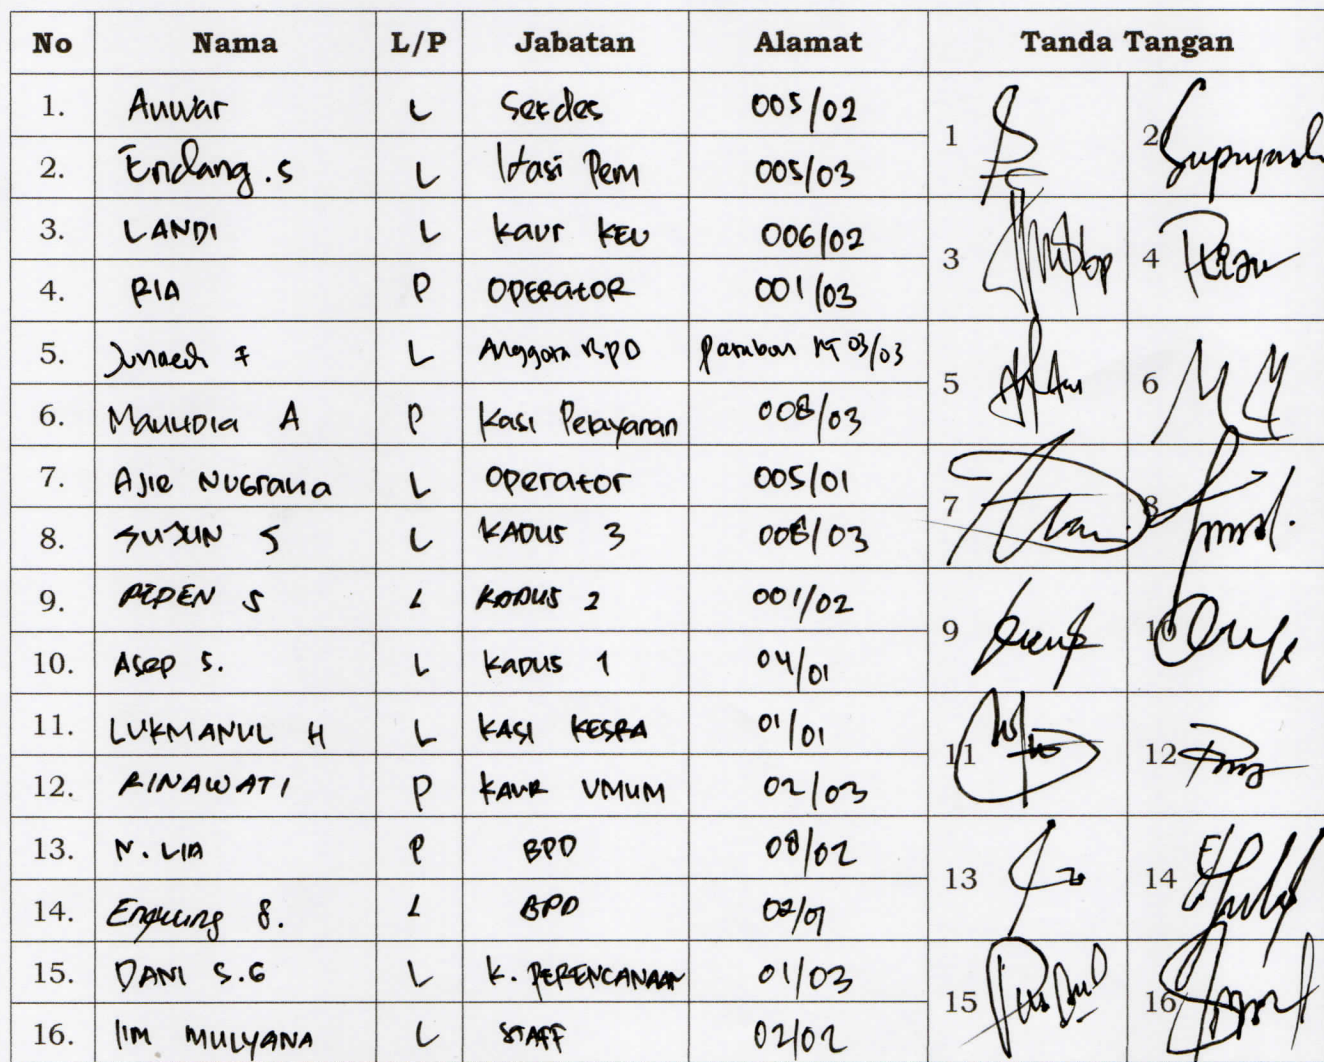 No Nama L/P Jabatan Alamat Tanda Tangan
1. Anwar L Sekdes 005/02 1 2
2. Endang.s L Kasi Pem 005/03
3. LANDI L kaur KEU 006/02 3 4
4. RIA P OPERATOR 001/03
5. Junaedi F L Anggota BPD RT 03/03 5 6
6. A P Kasi Pelayanan 008/03
7. AJIE NUGRAHA L OPERATOR 005/01 7 8
8. S L KADUS 3 008/03
9. PEPEN S L KADUS 2 001/02 9 10
10. Asep S. L KADUS 1 04/01
11. LUKMANUL H L KASI KESRA 01/01 11 12
12. RINAWATI P KAUR UMUM 02/03
13. N. LIA P BPD 08/02 13 14
14. L BPD
15. DANI S.G L K. PERENCANAAN 01/03 15 16
16. IIM MULYANA L STAFF 02/02